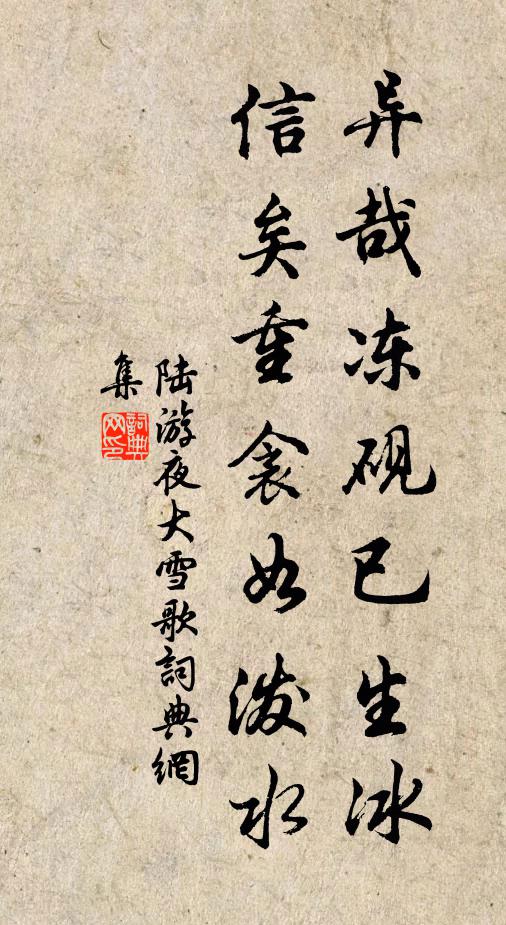 异哉冻砚已生冰
信矣重衾如泼水
陆游夜大雪歌詞典網
集
詞典网印